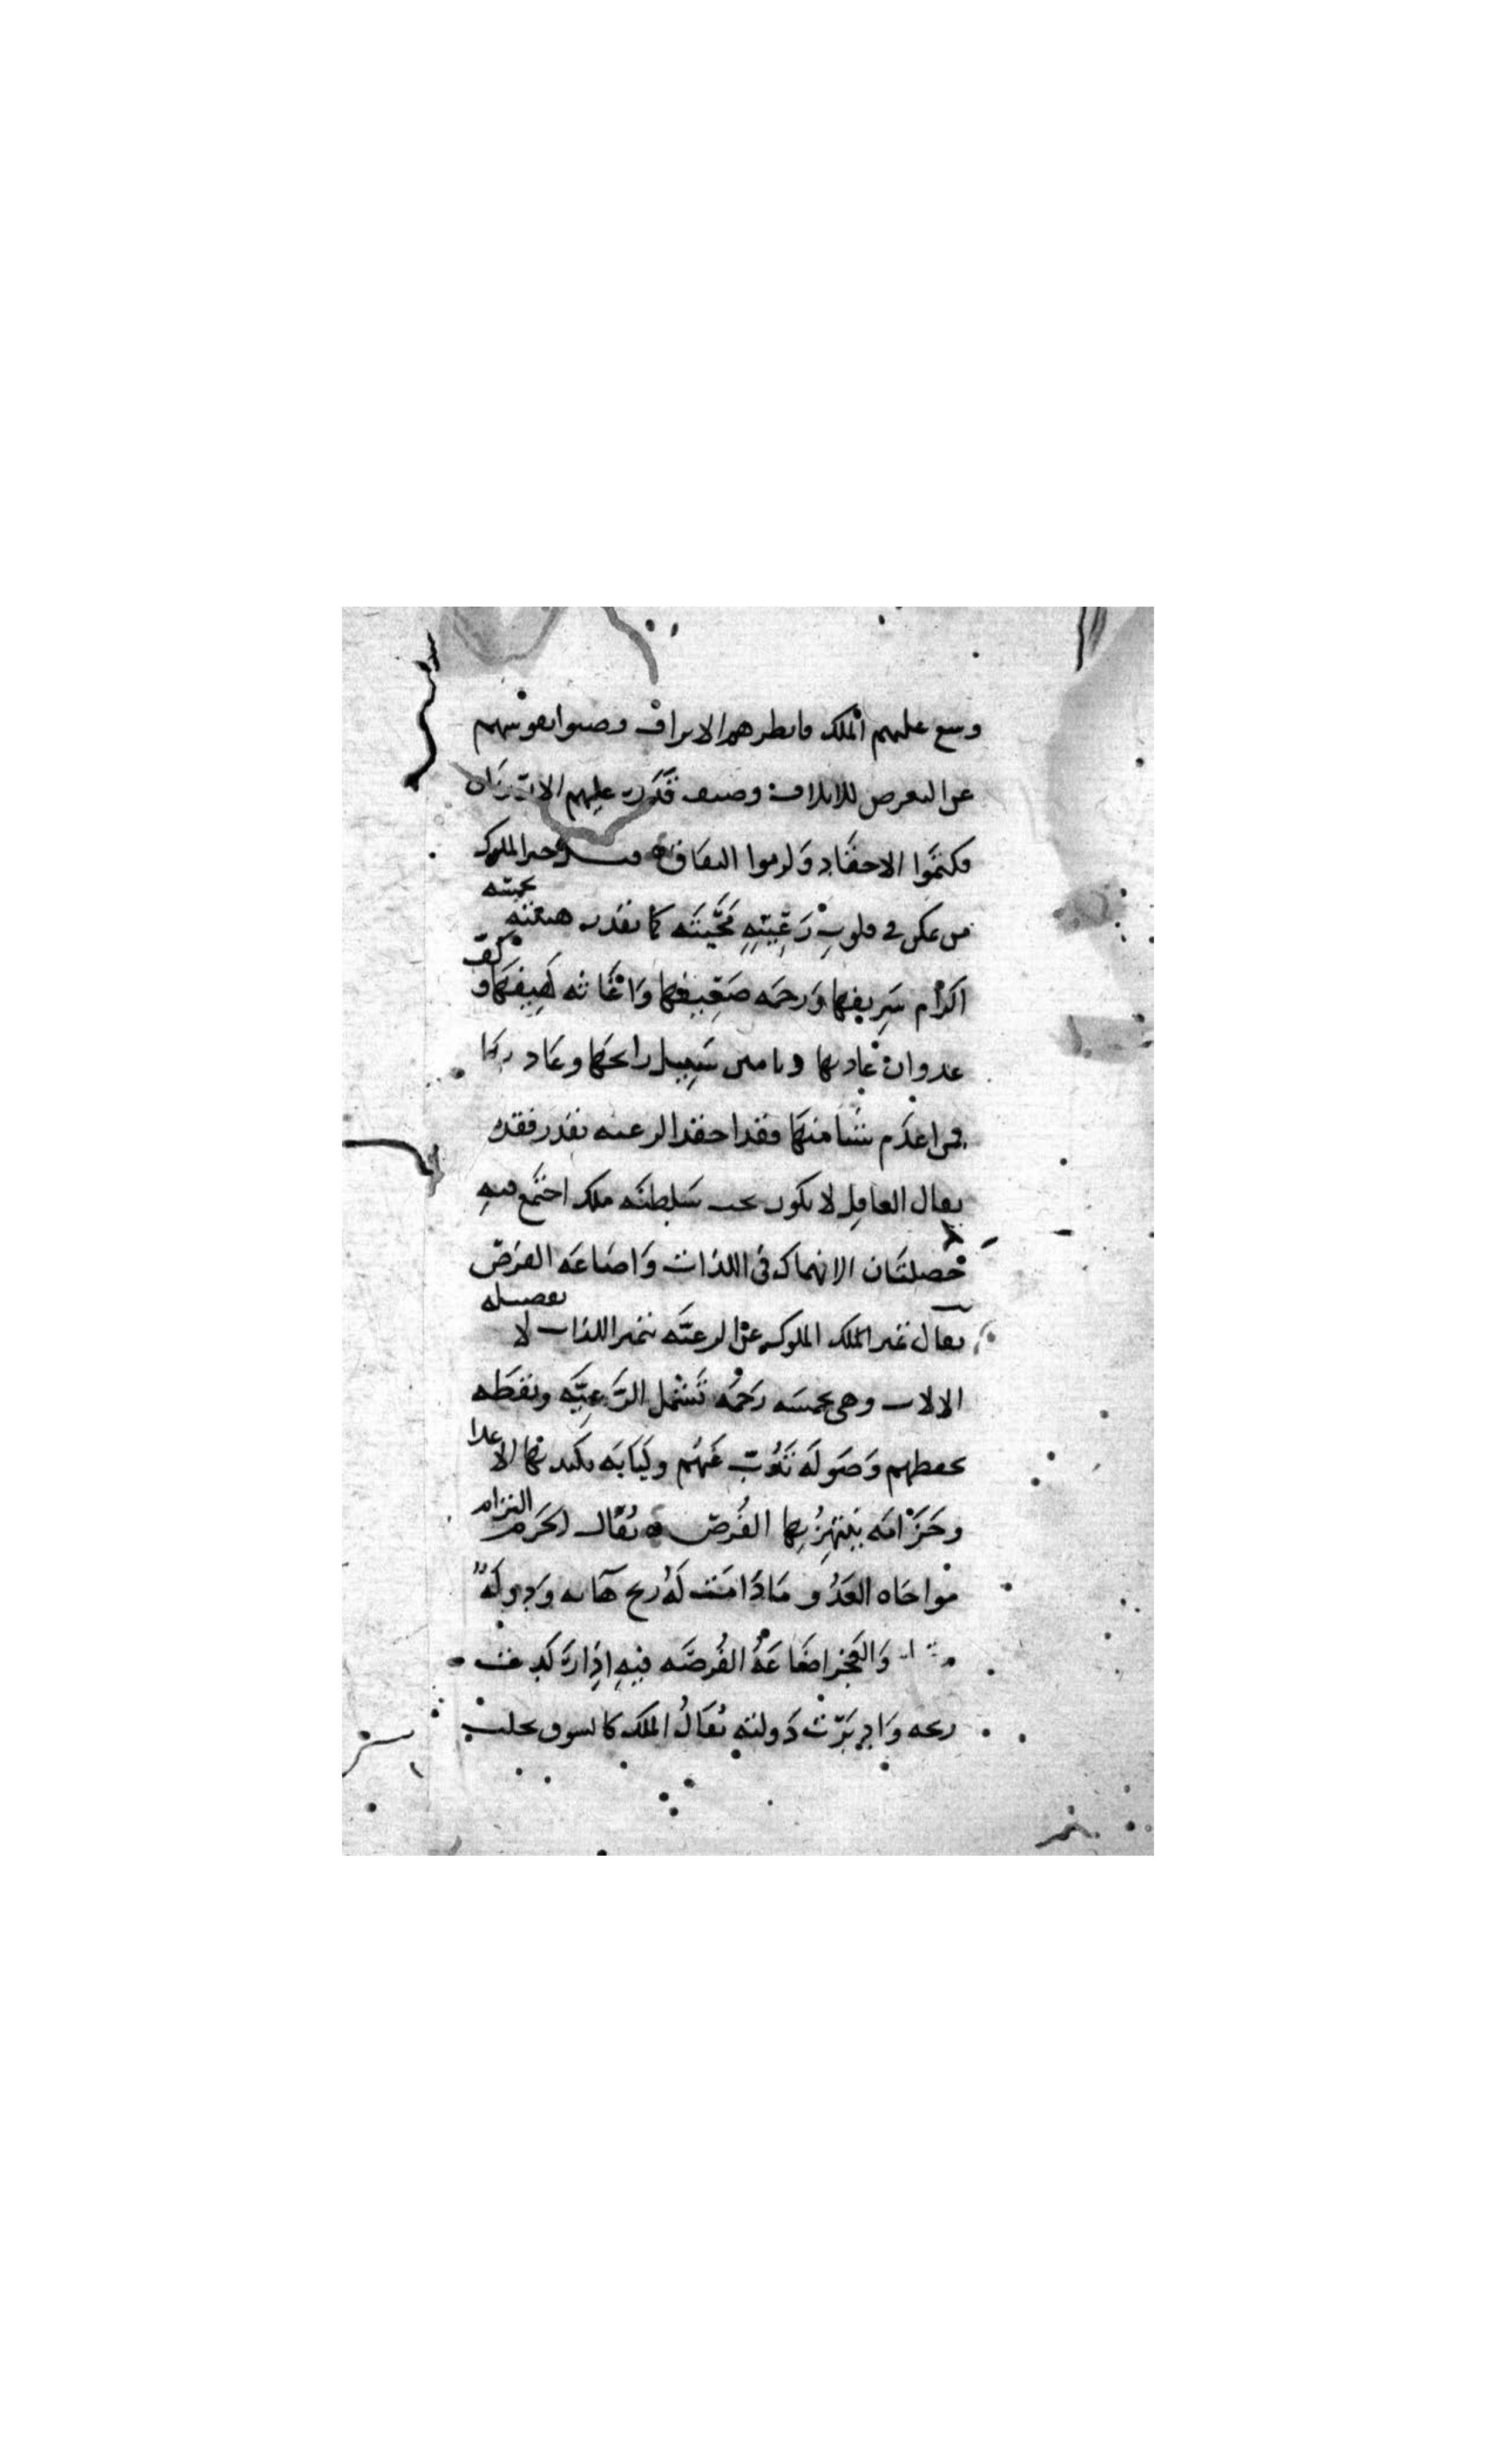 وسع عليهم الملك فابطرهم الاتراف وصنوا بنفوسهم
عن التعرض للاتلاف وصنف عليهم
فكتموا الاحقاد ولزموا النفاق خير الملوك
من تمكن في قلوب رعيته محبته كما تقدر هيبته
اكرام شريفها ورحمه ضعيفها واغاثه لهيفها وكف
عدوان عاديها وتامين سبيل رايحها وغاديها
فمن اعدم شيا منها فقد احقد الرعيه بقدر فقده
يقال العاقل لا يكون تحت سلطنه ملك اجتمع فيه
خصلتان الانهماك في اللذات واضاعه الفرص
يقال تميز الملك الملوك عن الرعيه بتميز اللذات لا بفضيله
الالات وهي خمسه رحمه تشمل الرعيه ويقظه
تحفظهم وصوله تذب عنهم ولبابه تكيد بها الاعدا
وحزامه ينتهز بها الفرص يقال الحزم التزام
مواخاه العدو ما دامت له ريح هابه ودوله
والعجز اضاعه الفرصه فيه اذا ركدت
ريحه وادبرت دولته يقال الملك كالسوق يجلب